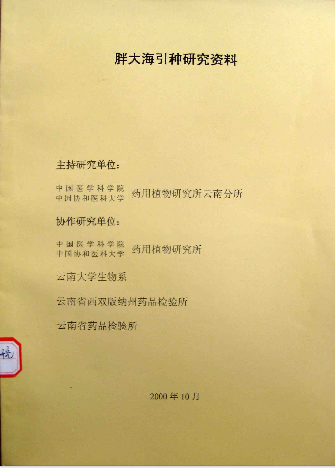 胖大海引种研究资料
主持研究单位：
中国医学科学院
中国协和医科大学 药用植物研究所云南分所
协作研究单位：
中国医学科学院
中国协和医科大学 药用植物研究所
云南大学生物系
云南省西双版纳州药品检验所
云南省药品检验所
2000年10月